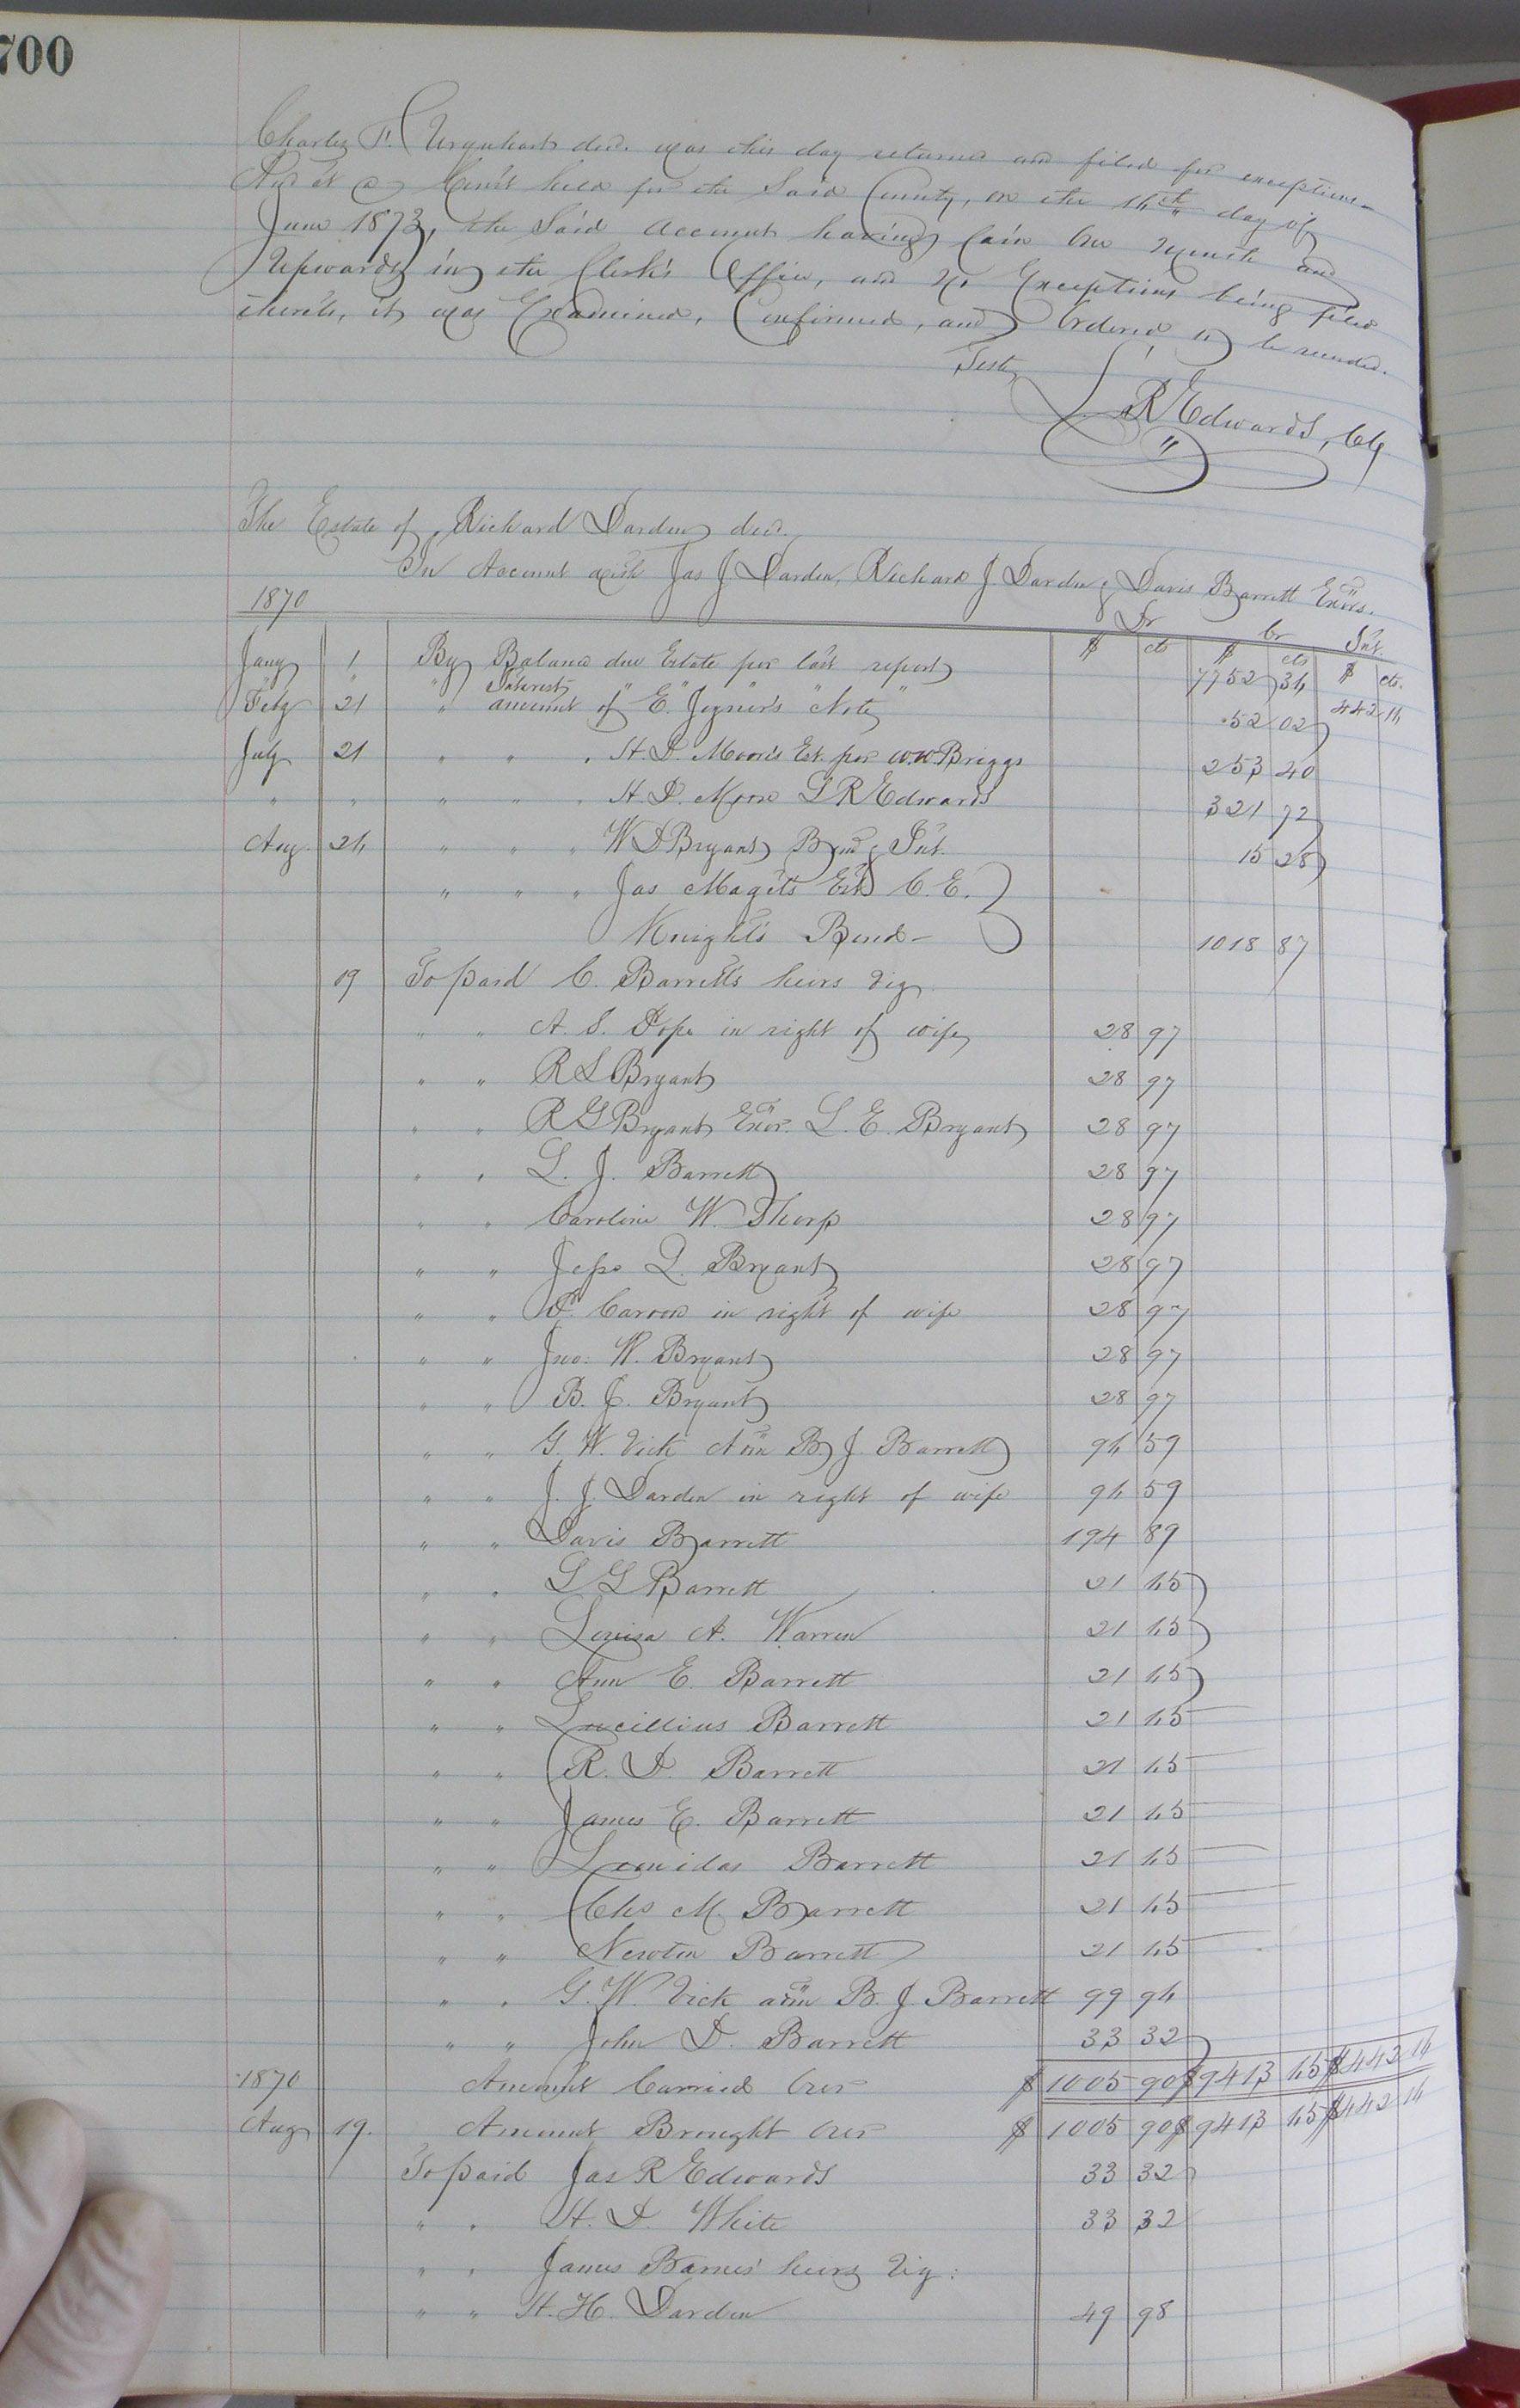 700
Charles F. Urquhart dec'd. was this day returned and filed for exceptions
And at a Court held for the Said County, on the 16th day of
June 1873, the Said account having lain One Month and
Upwards in the Clerk's Office, and no Exceptions being filed
thereto, it was Examined, Confirmed, and Ordered to be recorded.
Teste
L. R Edwards, Clk
The Estate of Richard Darden dec'd.
In Account with Jas J Darden, Richard J Darden & Davis Barrett Exors.
1870 Dr Cr Int.
$ cts $ cts $ cts.
Jany 1 By Balance due Estate per last report 7752 34
" " Interest " " " " 442 14
Feby 21 " amount of E. Joyner's Note 52 02
July 21 " " " H. D. Moore's Est. per W.W. Briggs 253 40
" " " " " H. D. Moore L R Edwards 321 72
Aug. 24 " " " W D Bryant Bond & Int. 15 28
" " " Jas Magets Est C. E.
Knight's Bond - 1018 87
19 To paid C. Barrett's heirs Viz
" " A. S. Pope in right of wife 28 97
" " R S Bryant 28 97
" " R G Bryant Exor. L. E. Bryant 28 97
" " L. J. Barrett 28 97
" " Caroline W. Thorp 28 97
" " Jesse Q. Bryant 28 97
" " Carroon in right of wife 28 97
" " Jno. W. Bryant 28 97
" " B. J. Bryant 28 97
" " G. W. Vick Adm B. J. Barrett 94 59
" " J. J. Darden in right of wife 94 59
" " Davis Barrett 194 89
" " L G Barrett 21 45
" " Louisa A. Warren 21 45
" " Ann E. Barrett 21 45
" " Lucillius Barrett 21 45
" " R. D. Barrett 21 45
" " James E. Barrett 21 45
" " Leonidas Barrett 21 45
" " Chs M. Barrett 21 45
" " Newton Barrett 21 45
" " G. W. Vick adm B. J. Barrett 99 94
" " John D. Barrett 33 32
1870 Amount Carried Over $ 1005 90 $ 9413 45 $ 442 14
Aug 19. Amount Brought Over $ 1005 90 $ 9413 45 $ 442 14
To paid Jas R Edwards 33 32
" " H. D. White 33 32
" " James Barnes' heirs Viz:
" " H. H. Darden 49 98